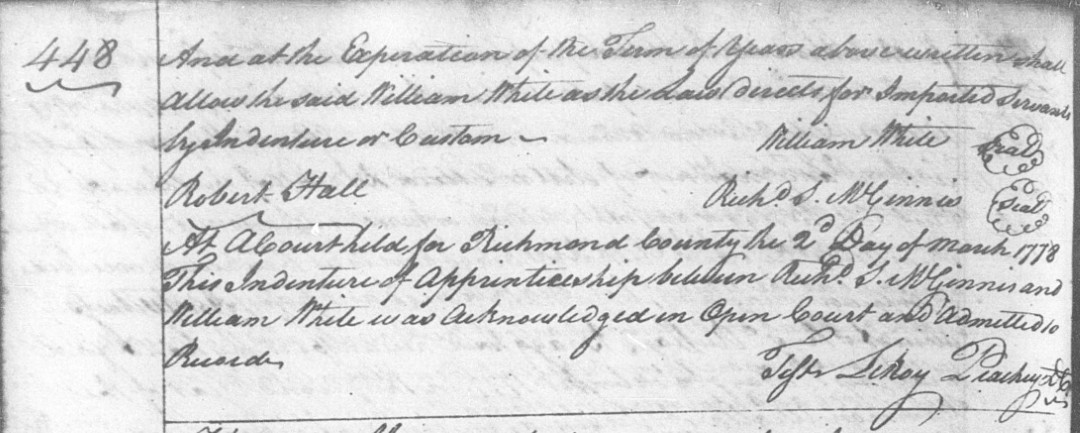 448
And at the Experation of the Term of Years above written shall
Allow the said William White as the Law directs for Imported Servants
by Indenture or Custom
William White Seal
Robert Hall Richd. S. McGinnis Seal
At A Court held for Richmond County the 2d Day of March 1778
This Indenture of Apprenticeship between Richd. S. McGinnis and
William White was Acknowledged in Open Court and Admitted to
Record
Teste LeRoy Peachey